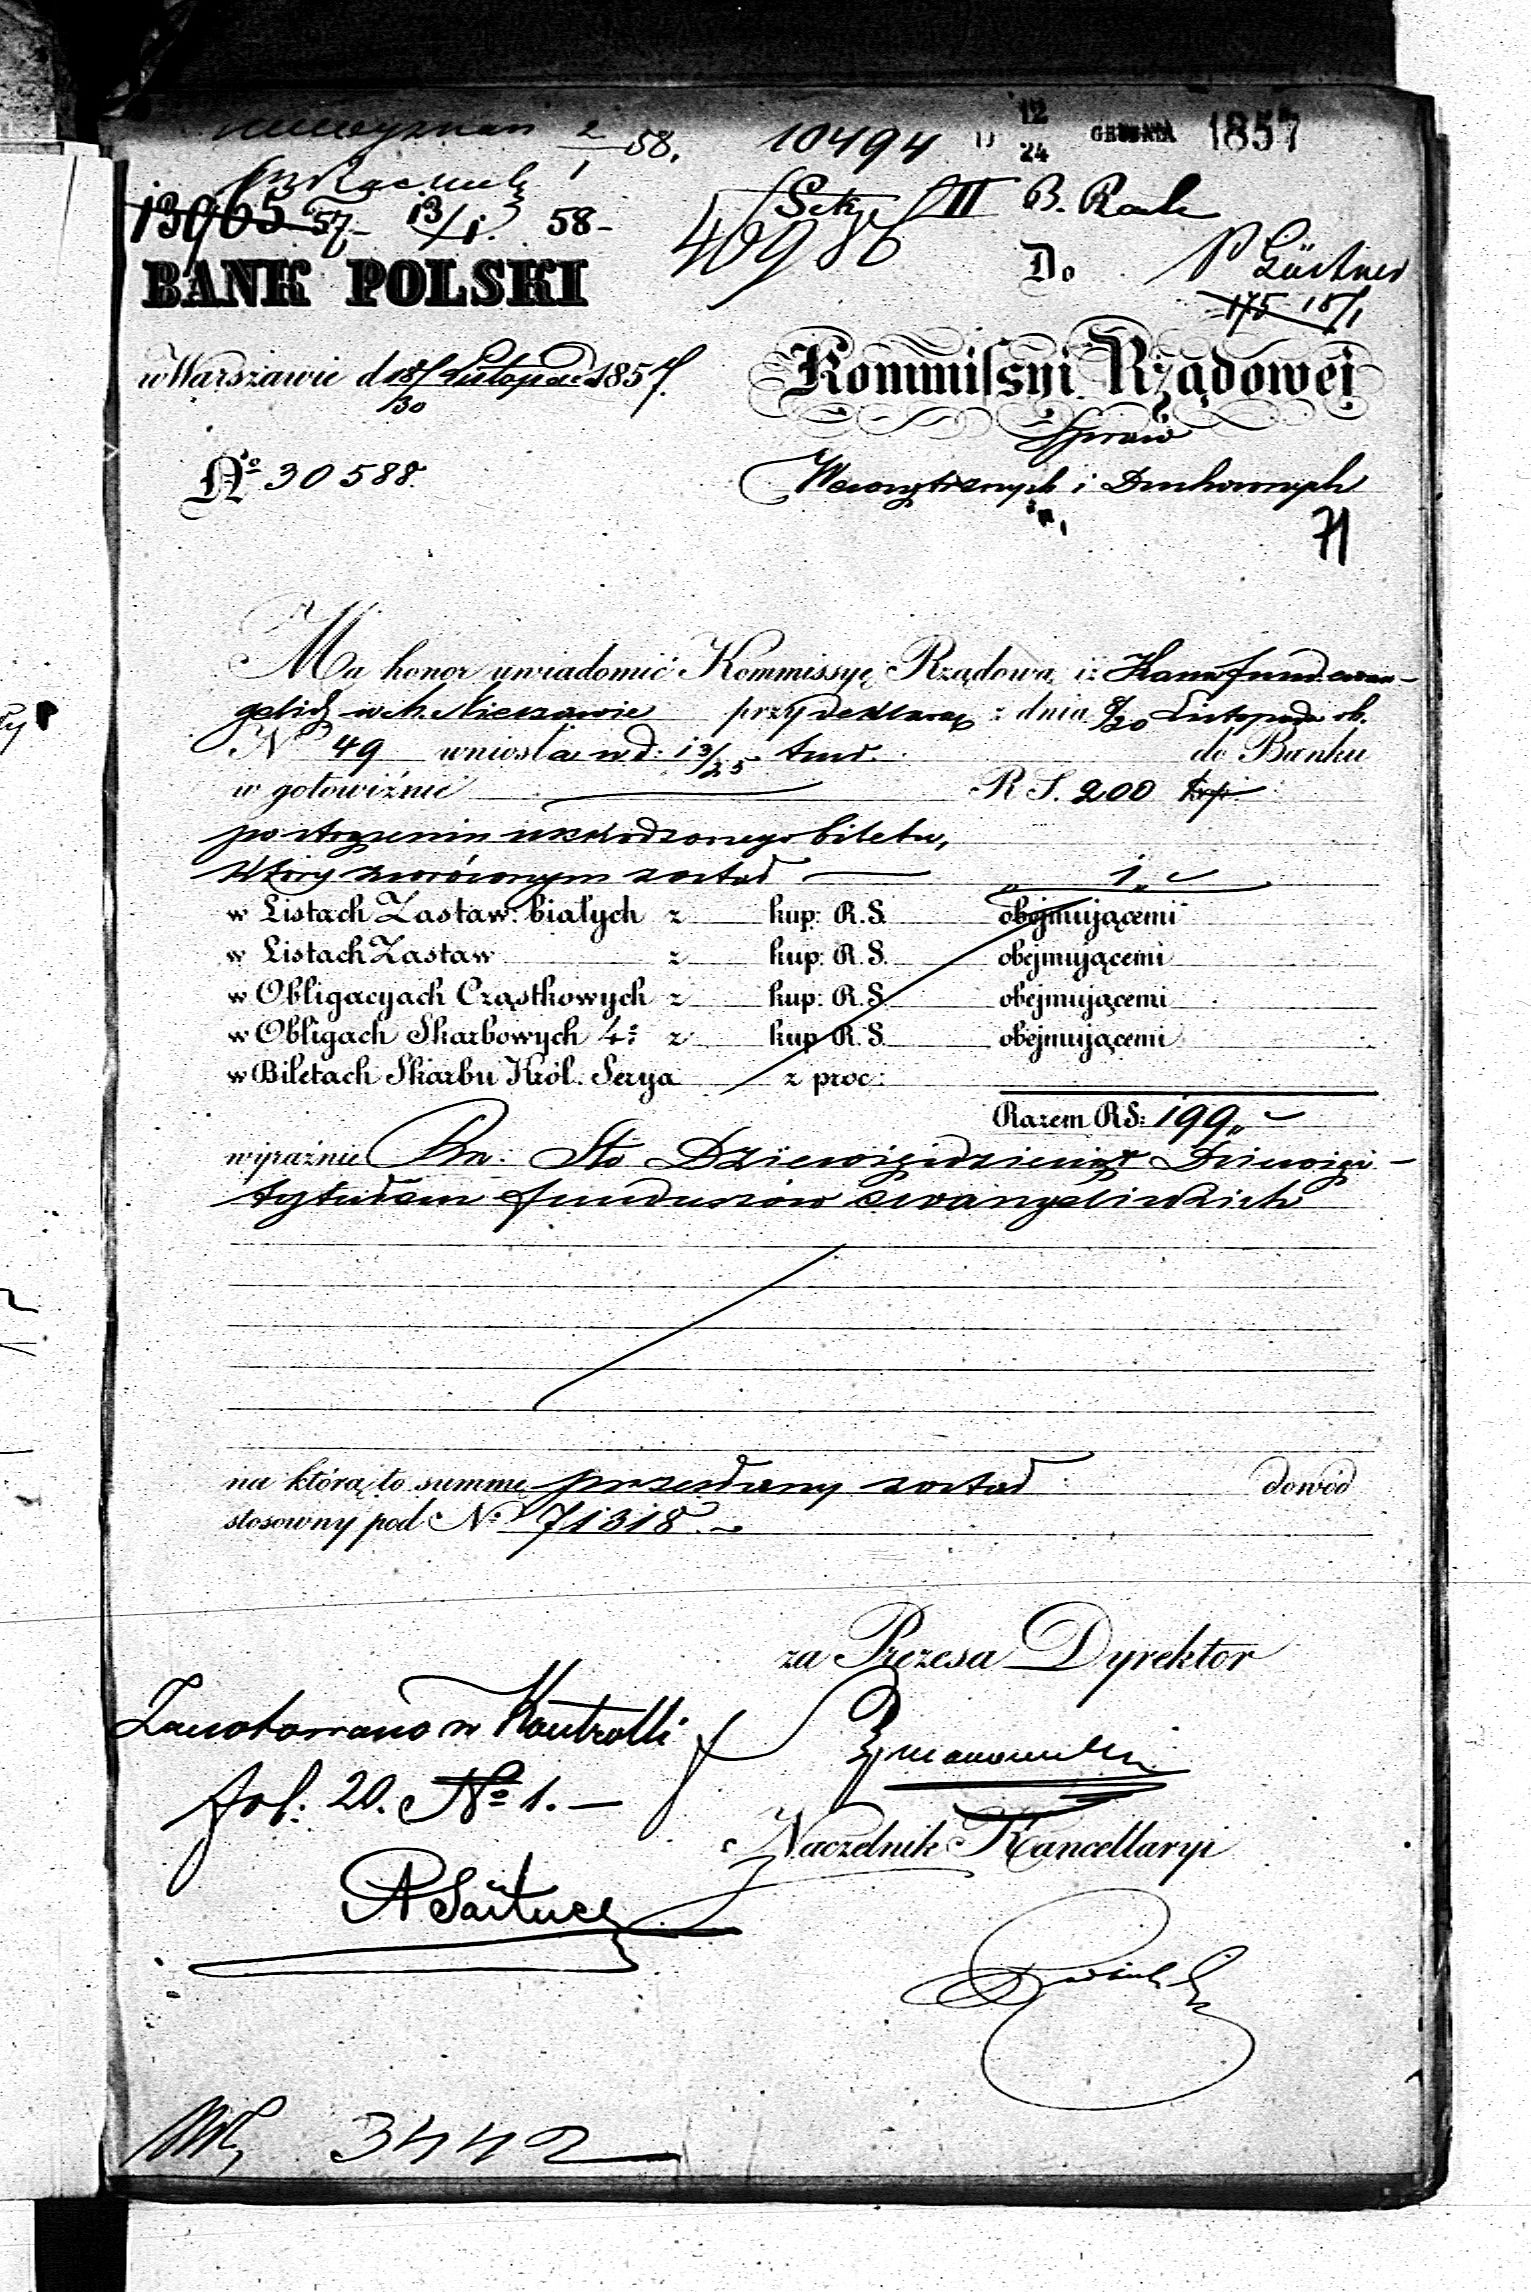 2/1 58.
10494
D 12/24 GRUDNIA 1857
13965 57 13/1. 58
40986
Sekr. II B. Rach
BANK POLSKI
Do P Güntner
175 18/1
w Warszawie d 18/30 Listopada 1857.
Kommissyi Rządowej
Spraw
Wewnętrznych i Duchownych
No 30588.
71
Ma honor uwiadomić Kommissyę Rządową, iż Kassa fund. ewan-
gelick. w m. Nieszawie przy deklaracyi z dnia 8/20 Listopada rb.
N 49 wniosła w d: 13/25 tmr. do Banku
w gotowiźnie R S. 200 kop:
po strąceniu uszkodzonego biletu,
który zwróconym został „ 1 „
w Listach Zastaw: białych z kup: R.S. obejmującemi
w Listach Zastaw z kup: R.S. obejmującemi
w Obligacyach Cząstkowych z kup: R.S. obejmującemi
w Obligach Skarbowych 4: z kup R.S. obejmującemi
w Biletach Skarbu Król. Serya z proc:
Razem RS: 199 „
wyraźnie Rsr. Sto Dziewięćdziesiąt Dziewięć
tytułem funduszów ewangelickich
na którą to summę przesłany został dowód
stosowny pod N: 71318.
za Prezesa Dyrektor
Zanotowano w Kontrolli
fol: 20. No 1.
Naczelnik Kancellaryi
3442